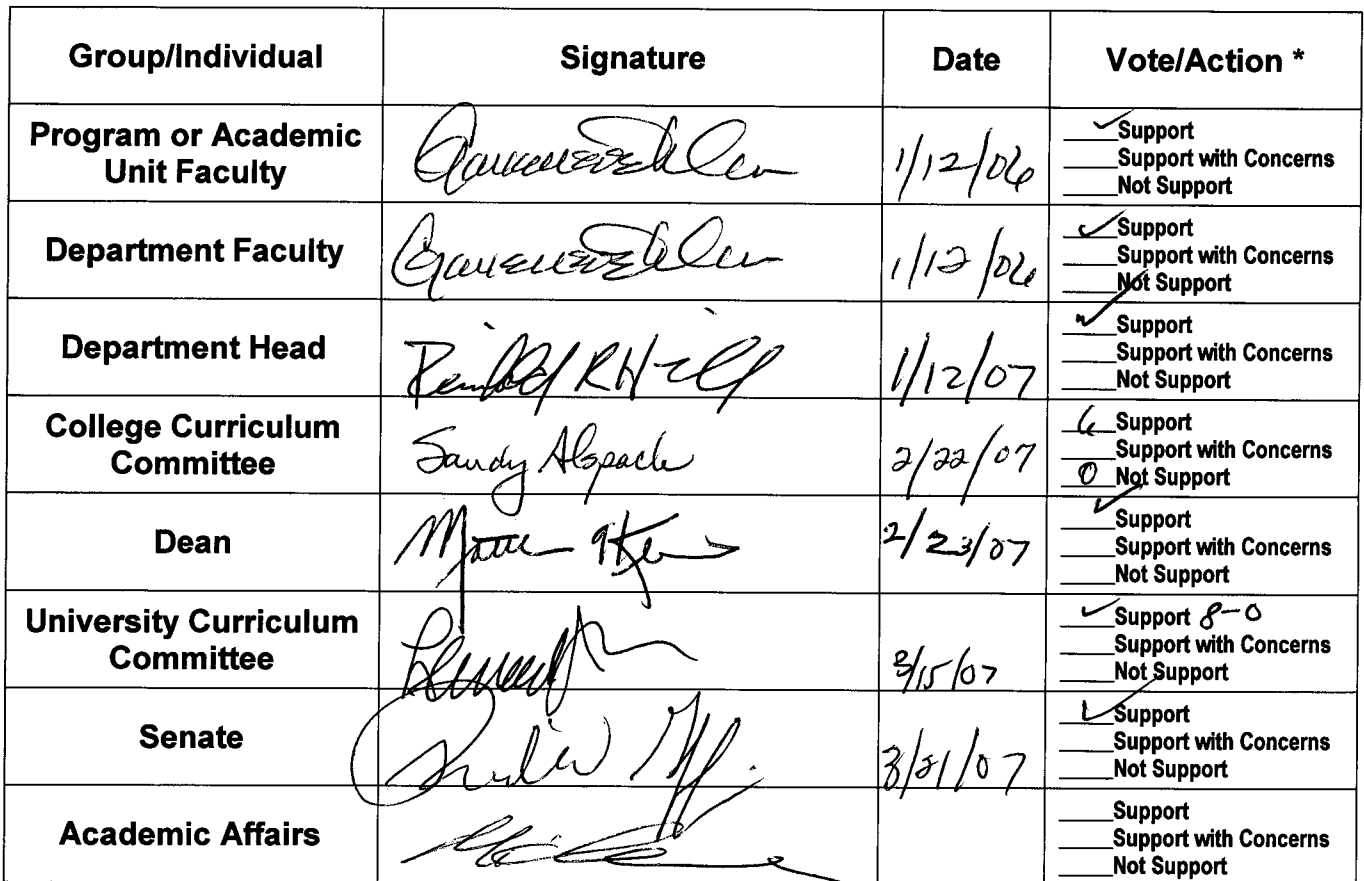 Group/Individual Signature Date Vote/Action *
Program or Academic Unit Faculty 1/12/06 ✓ Support
Support with Concerns
Not Support
Department Faculty 1/12/06 ✓ Support
Support with Concerns
Not Support
Department Head 1/12/07 ✓ Support
Support with Concerns
Not Support
College Curriculum Committee Sandy Alspach 2/22/07 6 Support
Support with Concerns
0 Not Support
Dean 2/23/07 ✓ Support
Support with Concerns
Not Support
University Curriculum Committee 3/15/07 ✓ Support 8-0
Support with Concerns
Not Support
Senate 3/21/07 ✓ Support
Support with Concerns
Not Support
Academic Affairs Support
Support with Concerns
Not Support